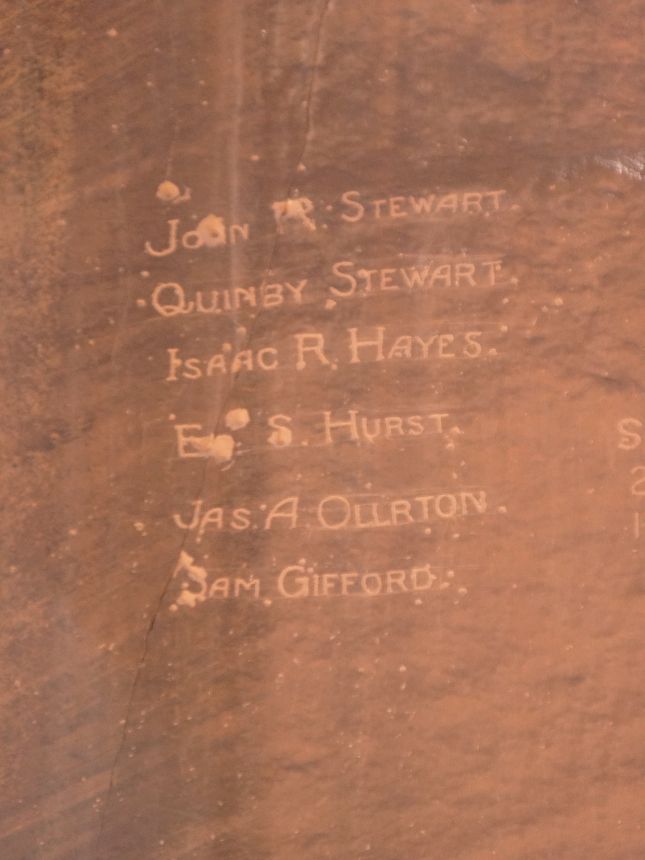 JOHN R. STEWART.
QUINBY STEWART.
ISAAC R. HAYES.
S. HURST.
JAS. A. OLLRTON.
SAM GIFFORD.
S
2
1